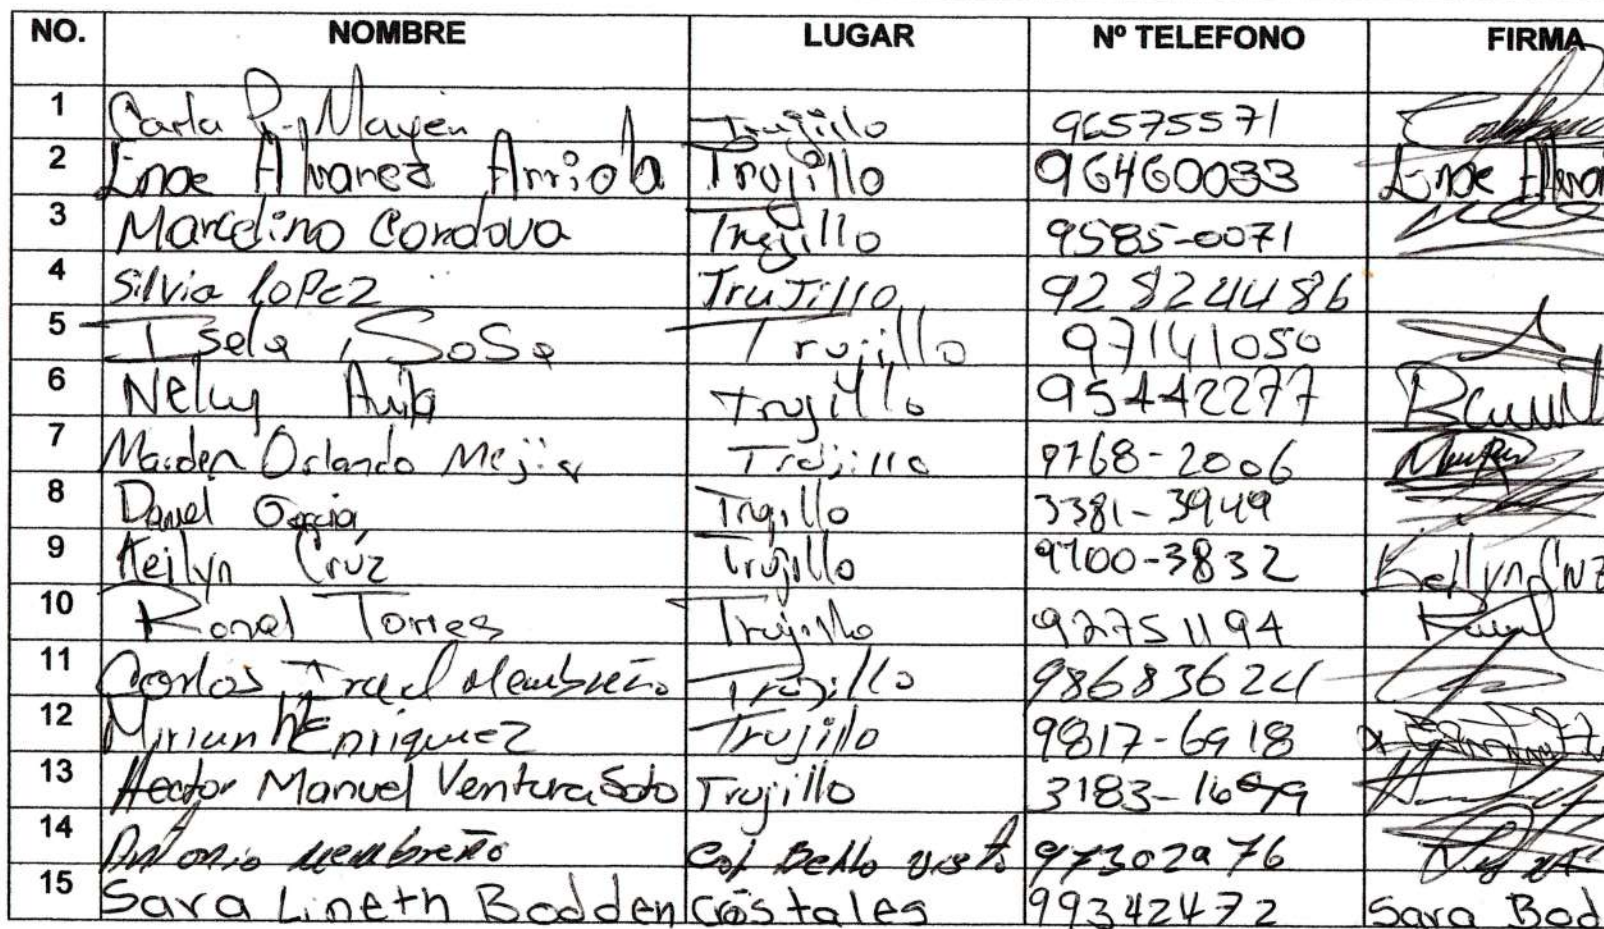 NO. NOMBRE LUGAR Nº TELEFONO FIRMA
1 Carla P. Mayen Trujillo 96575571
2 Enoe Alvarez Arriola Trujillo 96460033 Enoe Alvar
3 Marcelino Cordova Trujillo 9585-0071
4 Silvia LoPez TruJillo 92824486
5 Isela Sosa Trujillo 97141050
6 Nelly Avila Trujillo 95442277
7 Marden Orlando Mejia Trujillo 9768-2006
8 Daniel Garcia Trujillo 3381-3949
9 Keilyn Cruz Trujillo 9700-3832 Keilyn Cruz
10 Ronal Torres Trujillo 92751194
11 Carlos Membreño Trujillo 98683624
12 Mirian Enriquez Trujillo 9817-6918
13 Hector Manuel Ventura Soto Trujillo 3183-1699
14 Antonio membreño Col Bello vista 97302976
15 Sara Lineth Bodden Cristales 99342472 Sara Bod